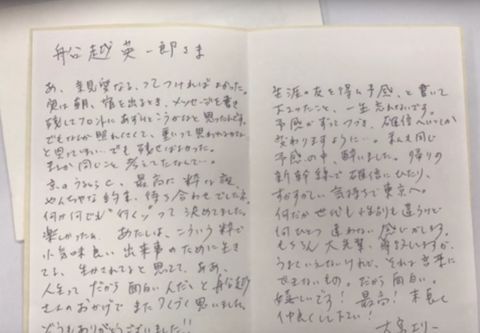 船谷越英一郎さま
あ、親見望なる、ってつければよかった。
実は朝、宿を出るとき、メッセージを書き
残してフロントにあずけとこうかなと思ったんです。
でもなんか照れくさくて、重いって思われるかな
と思ってしまい…でも残せばよかった。
まさか同じこと考えてたなんて…
京のうららと、最高に粋な夜、
めんちゃな約束、待ち合わせでした。
何が何でも"行くゾ"って決めてました。
楽しかったぁ、あたしは、こういう粋で
小気味良い出来事のために生き
てる、生かされてると思ってて、ああ、
人生ってだから面白いんだ、と船越
さんのおかげでまたつくづく思いました。
どうもありがとうございました!!
生涯の友を得た予感、と書いて
下さったこと、一生忘れないです。
予感がすってつづき、確信へいつしか
変わりますように…。私も同じ
予感の中、酔いました。帰りの
新幹線で確信にひたり、
すがすがしい気持ちで東京へ。
何だか世代も性別も違うけど
何ひとつ違わない感じがします。
もちろん大先輩、ですが、
うまくいえないけれど、それは言葉に
できないもの。だから面白い。
嬉しいです!最高!末長く
仲良くして下さい!
大宮エリー